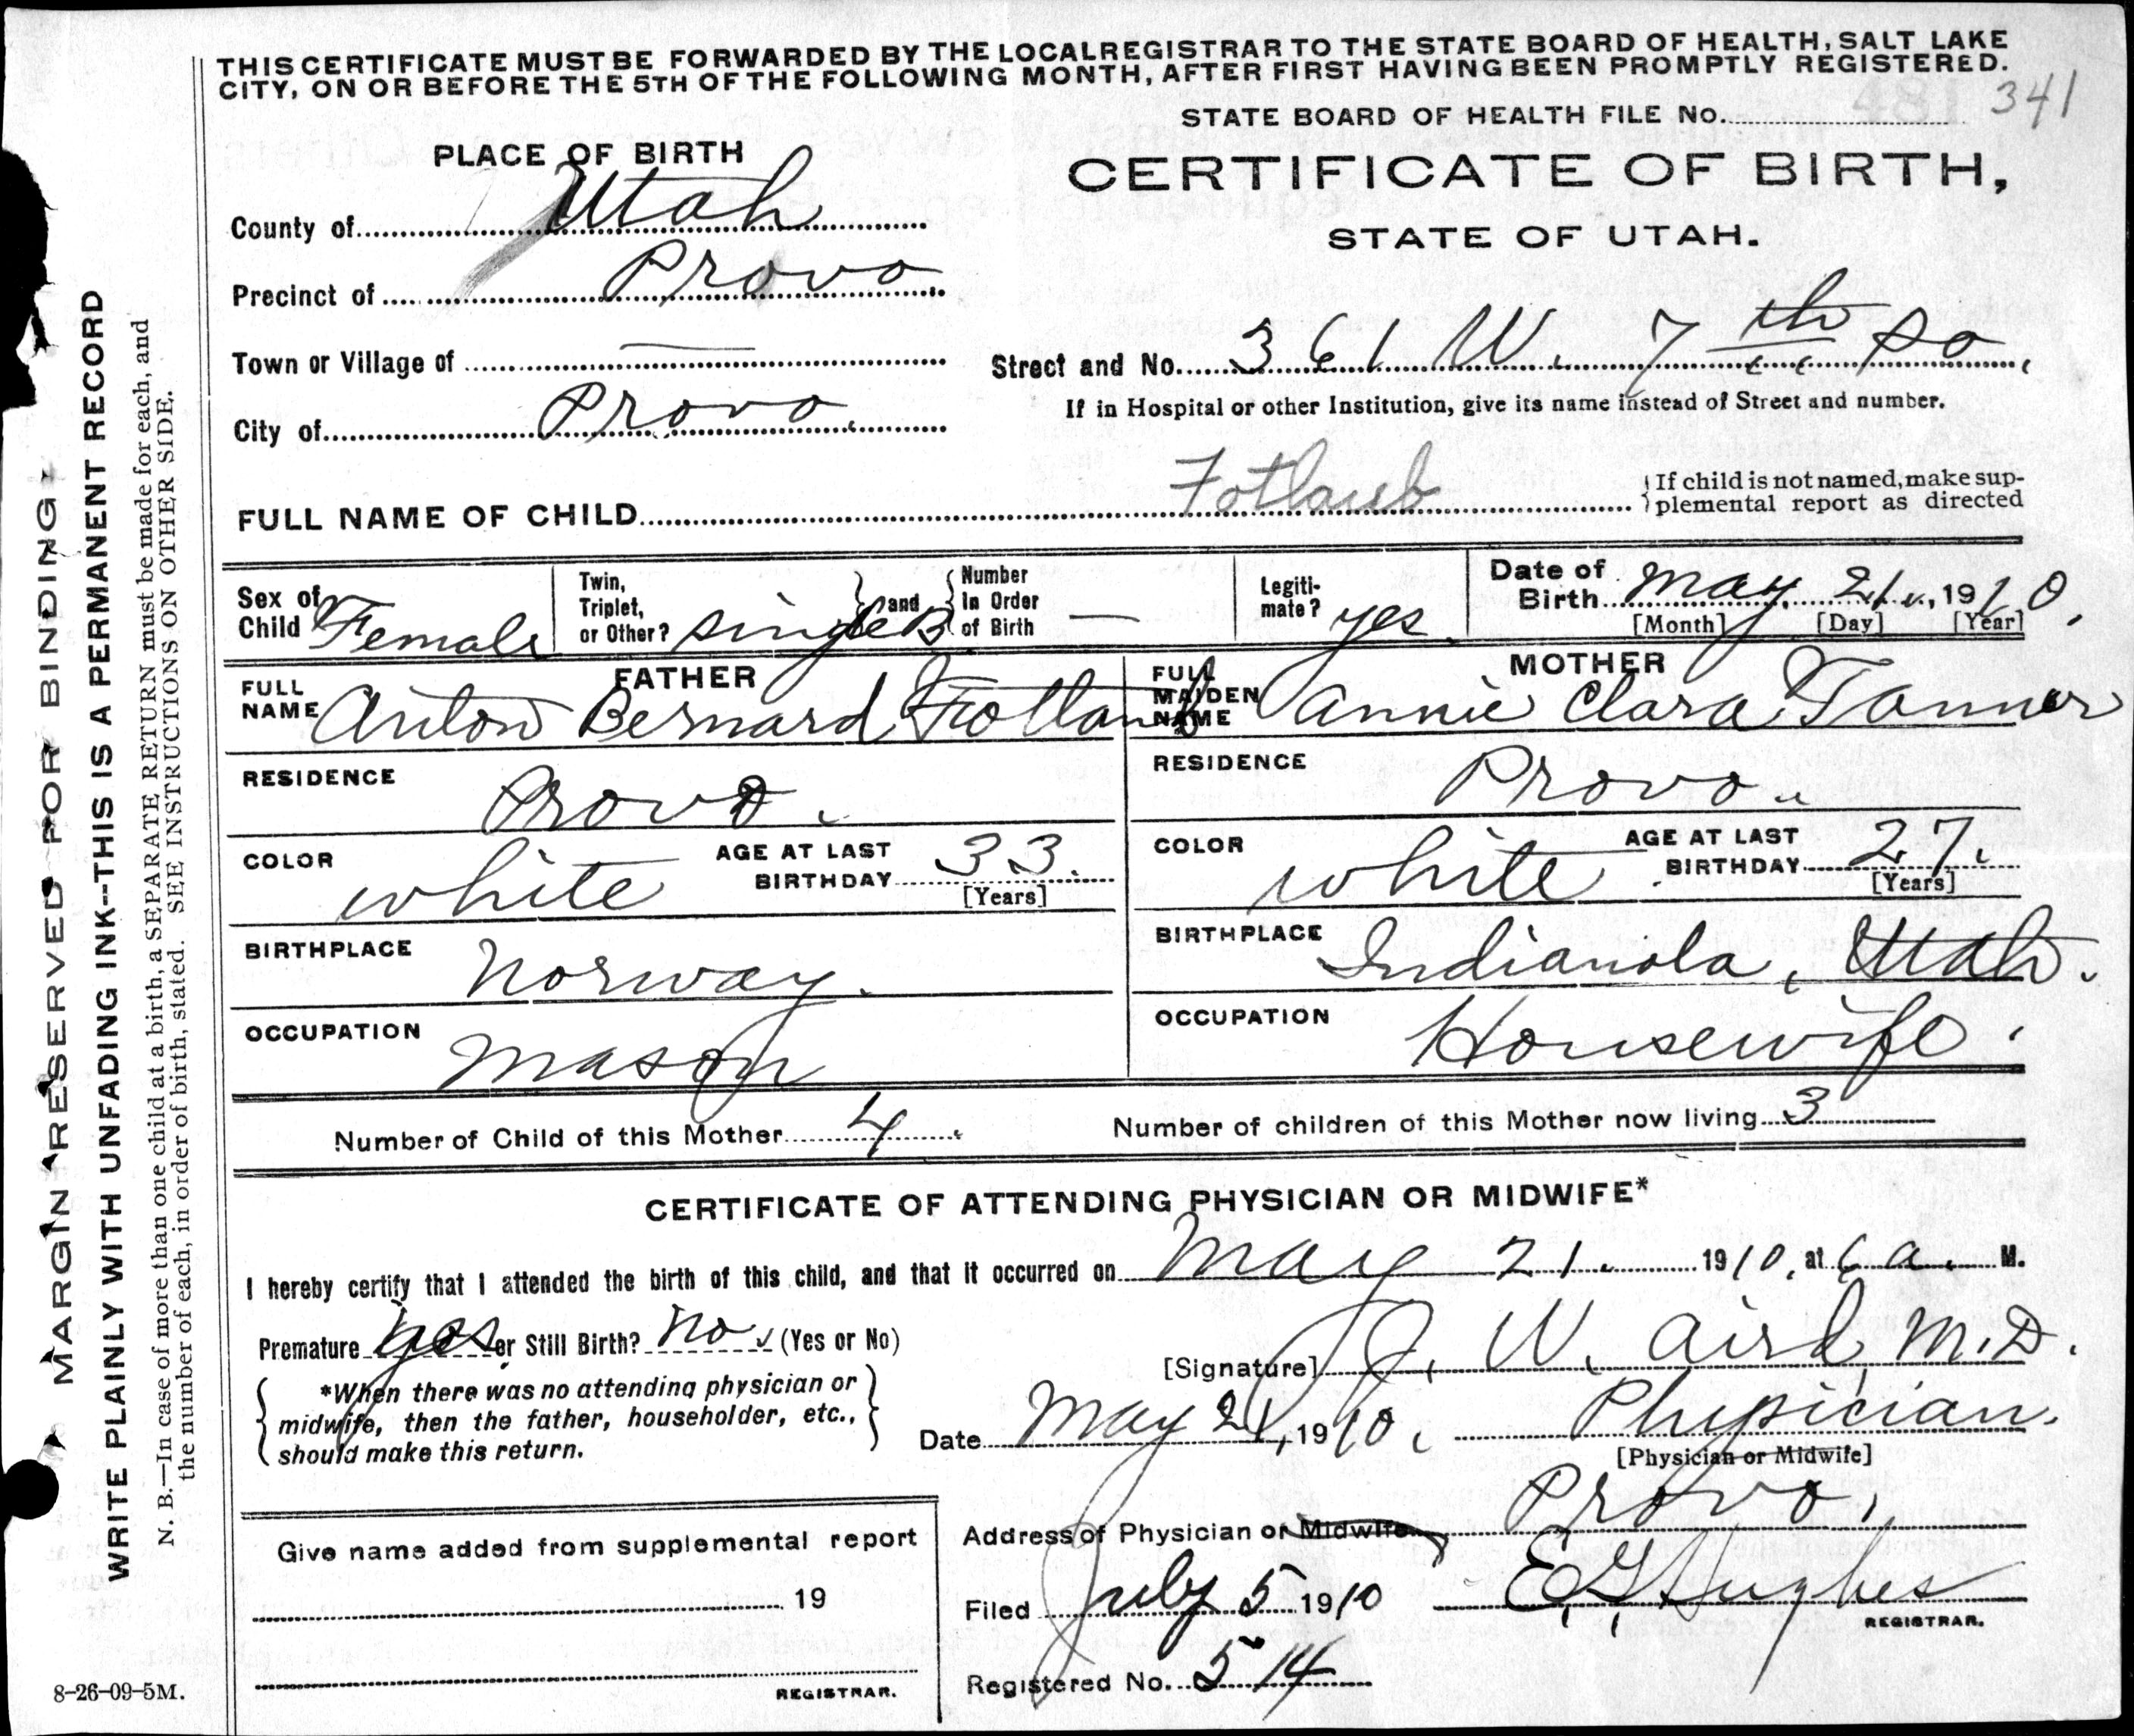 THIS CERTIFICATE MUST BE FORWARDED BY THE LOCAL REGISTRAR TO THE STATE BOARD OF HEALTH, SALT LAKE
CITY, ON OR BEFORE THE 5TH OF THE FOLLOWING MONTH, AFTER FIRST HAVING BEEN PROMPTLY REGISTERED.
STATE BOARD OF HEALTH FILE No. 341
PLACE OF BIRTH
CERTIFICATE OF BIRTH,
STATE OF UTAH.
County of Utah
Precinct of Provo
Town or Village of —
Street and No. 361 W. 7th So.
If in Hospital or other Institution, give its name instead of Street and number.
City of Provo
FULL NAME OF CHILD Fotlaub
{If child is not named, make sup-
plemental report as directed
Sex of Child Female
Twin, Triplet, or Other? single B } and { Number In Order of Birth —
Legiti-mate? yes
Date of Birth May 21, 1910.
[Month] [Day] [Year]
FATHER
FULL NAME Anton Bernard
RESIDENCE Provo.
COLOR white
AGE AT LAST BIRTHDAY 33.
[Years]
BIRTHPLACE Norway.
OCCUPATION Mason
MOTHER
FULL MAIDEN NAME Annie Clara Tanner
RESIDENCE Provo.
COLOR white
AGE AT LAST BIRTHDAY 27.
[Years]
BIRTHPLACE Indianola, Utah.
OCCUPATION Housewife.
Number of Child of this Mother 4.
Number of children of this Mother now living 3
CERTIFICATE OF ATTENDING PHYSICIAN OR MIDWIFE*
I hereby certify that I attended the birth of this child, and that it occurred on May 21. 1910, at 6 a. M.
Premature yes or Still Birth? no (Yes or No)
[Signature] J. W. Aird, M.D.
{ *When there was no attending physician or
midwife, then the father, householder, etc.,
should make this return. }
Date May 21, 1910. Physician.
[Physician or Midwife]
Address of Physician or Midwife Provo.
Give name added from supplemental report
19
REGISTRAR.
Filed July 5 1910 E G Hughes
REGISTRAR.
Registered No. 514
8-26-09-5M.
MARGIN RESERVED FOR BINDING
WRITE PLAINLY WITH UNFADING INK--THIS IS A PERMANENT RECORD
N. B.—In case of more than one child at a birth, a SEPARATE RETURN must be made for each, and
the number of each, in order of birth, stated. SEE INSTRUCTIONS ON OTHER SIDE.